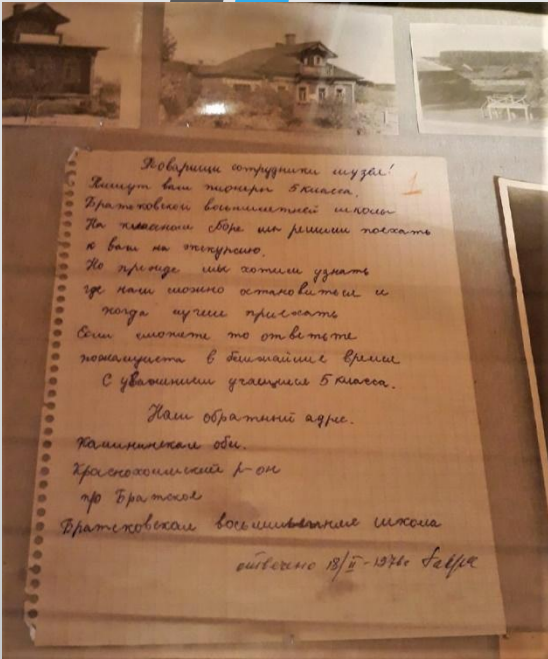 Товарищи сотрудники музея!
1
Пишут вам пионеры 5 класса.
Братсковской восьмилетней школы
На классном сборе мы решили поехать
к вам на экскурсию.
Но прежде мы хотим узнать
где нам можно остановиться и
когда лучше приехать
Если сможете то ответьте
пожалуйста в ближайшие время
С уважением учащиеся 5 класса.
Наш обратный адрес.
Калининская обл.
Краснохолмский р-он
п/о Братское
Братсковская восьмилетняя школа
отвечено 18/II-1976г